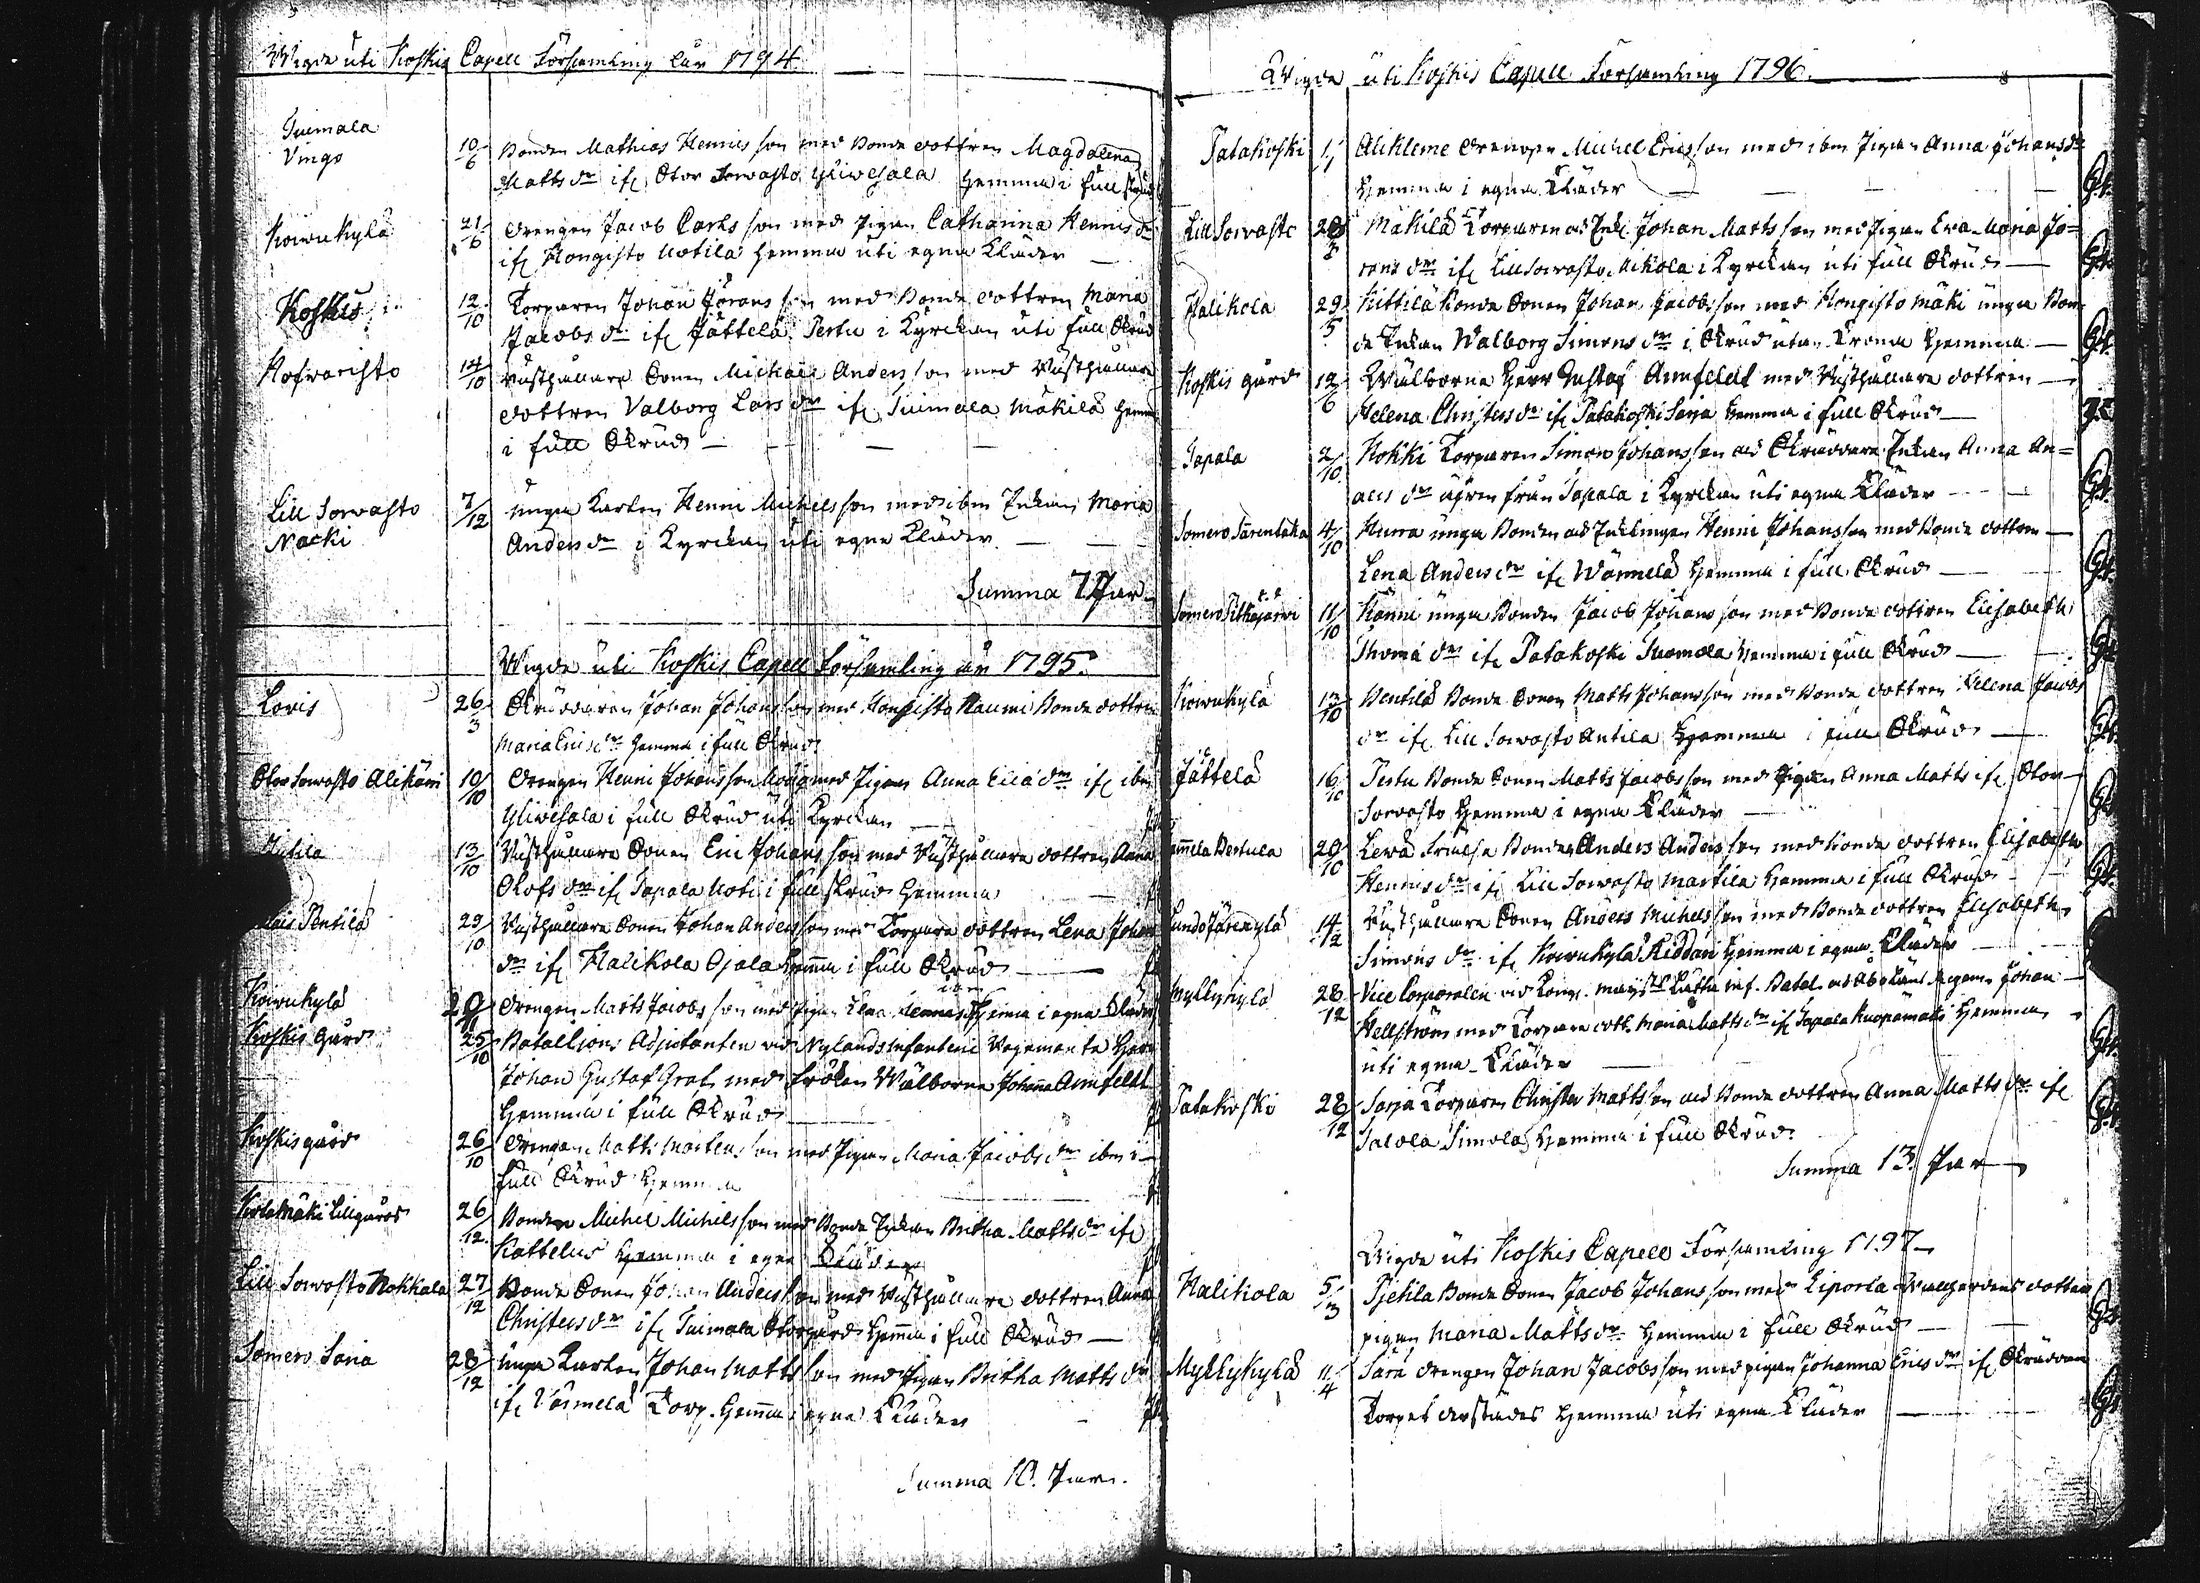 Wigde uti Koskis Capell Församling åhr 1794.
Tuimala
Vingo
10/6 Bonden Mathias Hennis son med Bonde dottren Magdalena
Matts dr ifr Stor Sorvasto Yliwesala hemma i full skrud
Koiwukylä 21/6 Drengen Jacob Carls son med Pigan Catharina Hennis dr
ifr Hongisto Uotila hemma uti egna Kläder
Koskis 12/10 Torparen Johan Jörans son med Bonde dottren Maria
Jacobs dr ifr Jättelä Pertu i Kyrckan uti full Skrud
Hofvaristo 14/10 Rusthållare Sonen Michael Anders son med Rusthållare
dottren Valborg Lars dr ifr Tuimala Mäkilä hemma
i full Skrud
Lill Sorvasto
Nacki
7/12 unga Karlen Henric Michels son med ibm Enkan Maria
Anders dr i Kyrckan uti egna Kläder
Summa 7 Par
Wigde uti Koskis Capell Församling år 1795.
Lovis 26/3 Skräddaren Johan Johans son med Hongisto Naumi Bonde dottren
Maria Erics dr hemma i full Skrud
Stor Sorvasto Alikävi 10/10 Drengen Henric Johans son med Pigan Anna Erics dr ifr ibm
Yliwesala i full Skrud uti Kyrckan
13/10 Rusthållare Sonen Eric Johans son med Rusthållare dottren Anna
Olofs dr ifr Tapala Uoti i full skrud hemma
Pentilä 23/10 Rusthållare Sonen Johan Anders son med Torpare dottren Lena Johans
dr ifr Halikola Ojala hemma i full Skrud
Koiwukylä Drengen Matts Jacobs son med Pigan Lena Hennis dr hemma i egna Kläder
Koskis Gård 25/10 Batallions Adjutanten vid Nylands Infanterie Regemente Herr
Johan Gustaf Graf med Fröken Wälborna Johanna Armfeldt
hemma i full Skrud
Koskis gård 26/10 Drengen Matts Mårtens son med Pigan Maria Jacobs dr ibm i
full Skrud hemma
Lillgård 26/12 Bonden Michel Michels son med Bonde Enkan Britha Matts dr ifr
Kattelus hemma i egna Kläder
Lill Sorvasto Hokkala 27/12 Bonde Sonen Johan Anders son med Rusthållare dottren Anna
Christers dr ifr Tuimala Storgård hemma i full Skrud
Somero Saria 28/12 unga Karlen Johan Matts son med Pigan Britha Matts dr
ifr Värmelä Torp hemma i egna Kläder
Summa 10. Par.
Wigde uti Koskis Capell Församling 1796.
Patakoski 1/1 Alikleme Drengen Michel Erics son med ibm Pigan Anna Johans dr
hemma i egna Kläder
Lill Sorvasto Mäkilä Torparen och Enkl. Johan Matts son med Pigan Eva Maria Jö=
rans dr ifr Lill Sorvasto Uckola i Kyrckan uti full Skrud
Halikola 29/5 Kittilä Bonde Sonen Johan Jacobs son med Hongisto Mäki unga Bon
de Enkan Walborg Simons dr i Skrud utan Krona hemma
Koskis gård 12/6 Wälborne Herr Gustaf Armfeldt med Rusthållare dottren
Helena Christers dr ifr Patakoski Sarja hemma i full Skrud
Tapala 2/10 Kokki Torparen Simon Johans son och Skräddare Enkan Anna An=
ders dr äfven från Tapala i Kyrckan uti egna Kläder
Somero Särentaka 4/10 Hurra unga Bonden och Enklingen Henric Johans son med Bonde dottren
Lena Anders dr ifr Wärmelä hemma i full Skrud
Somero Pitkäjärvi 11/10 Känni unga Bonden Jacob Johans son med Bonde dottren Elisabeth
Thomæ dr ifr Patakoski Tuomola hemma i full Skrud
Koiwukylä 13/10 Pentilä Bonde Sonen Matts Johans son med Bonde dottren Helena Jacobs
dr ifr Lill Sorvasto Antila hemma i full Skrud
Jättelä 16/10 Pertu Bonde Sonen Matts Jacobs son med Pigan Anna Matts ifr Stor
Sorvasto hemma i egna Kläder
20/10 Lewä Frälse Bonden Anders Anders son med Bonde dottren Elisabeth
Hennis dr ifr Lill Sorvasto Martila hemma i full Skrud
14/12 Rusthållare Sonen Anders Michels son med Bonde dottren Elisabeth
Simons dr ifr Koiwukylä Riddari hemma i egna Kläder
Myllykylä 28/12 Vice Corporalen vid Kongl. Majts Lätta Inf. Batal. vid Åbo Läns Regem. Johan
Hellström med Torpare dott. Maria Matts dr ifr Tapala Kuopamäki hemma
uti egna Kläder
Patakoski 28/12 Sarja Torparen Christer Matts son och Bonde dottren Anna Matts dr ifr
Talola Simola hemma i full Skrud
Summa 13. Par
Wigde uti Koskis Capell Församling 1797
Halikola 5/3 Pjekla Bonde Sonen Jacob Johans son med Liporla dotter
pigan Maria Matts dr hemma i full Skrud
Myllykylä 11/4 Sara Drengen Johan Jacobs son med pigan Johanna Erics dr ifr Skräddare
Torpet derstädes hemma uti egna Kläder